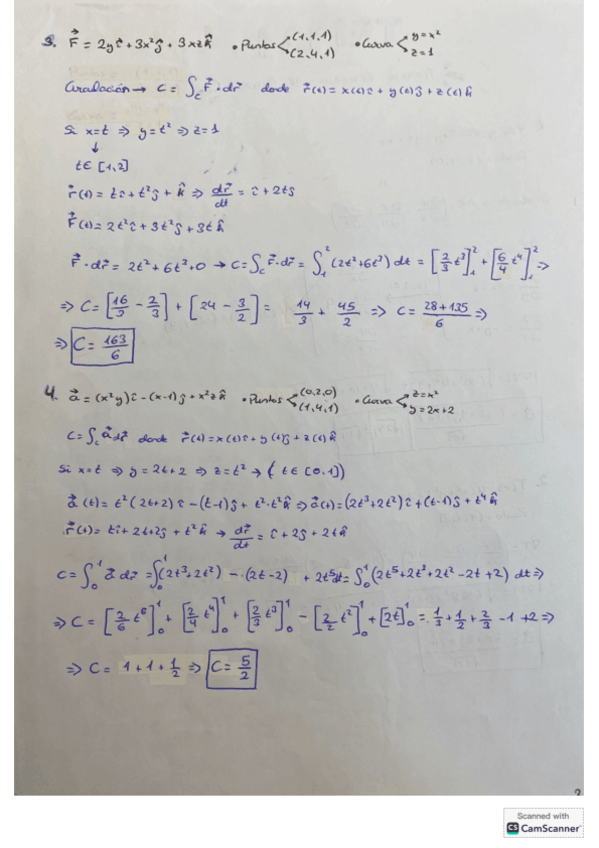 3. F⃗ = 2yî + 3x²ĵ + 3xzk̂ • Puntos (1,1,1) (2,4,1) • Curva y=x² z=1
Circulación → C = ∫_C F⃗·dr⃗ donde r⃗(t) = x(t)î + y(t)ĵ + z(t)k̂
Si x=t ⇒ y=t² ⇒ z=1
↓
t∈ [1,2]
r⃗(t) = tî + t²ĵ + k̂ ⇒ dr⃗/dt = î + 2tĵ
F⃗(t) = 2t²î + 3t²ĵ + 3tk̂
F⃗·dr⃗ = 2t² + 6t³ + 0 → C = ∫_C F⃗·dr⃗ = ∫₁² (2t²+6t³) dt = [2/3 t³]₁² + [6/4 t⁴]₁² ⇒
⇒ C = [16/3 - 2/3] + [24 - 3/2] = 14/3 + 45/2 ⇒ C = 28+135/6 ⇒
⇒ C = 163/6
4. a⃗ = (x²y)î - (x-1)ĵ + x²zk̂ • Puntos (0,2,0) (1,4,1) • Curva z=x² y=2x+2
C = ∫_C a⃗ dr⃗ donde r⃗(t) = x(t)î + y(t)ĵ + z(t)k̂
Si x=t ⇒ y = 2t+2 ⇒ z=t² → ( t∈ [0,1])
a⃗(t) = t²(2t+2)î - (t-1)ĵ + t²·t²k̂ ⇒ a⃗(t) = (2t³+2t²)î + (t-1)ĵ + t⁴k̂
r⃗(t) = tî + 2t+2ĵ + t²k̂ → dr⃗/dt = î + 2ĵ + 2tk̂
C = ∫₀¹ a⃗ dr⃗ = ∫₀¹ (2t³+2t²) - (2t-2) + 2t⁵dt = ∫₀¹ (2t⁵+2t³+2t²-2t+2) dt ⇒
⇒ C = [2/6 t⁶]₀¹ + [2/4 t⁴]₀¹ + [2/3 t³]₀¹ - [2/2 t²]₀¹ + [2t]₀¹ = 1/3 + 1/2 + 2/3 - 1 + 2 ⇒
⇒ C = 1 + 1 + 1/2 ⇒ C = 5/2
Scanned with
CS CamScanner